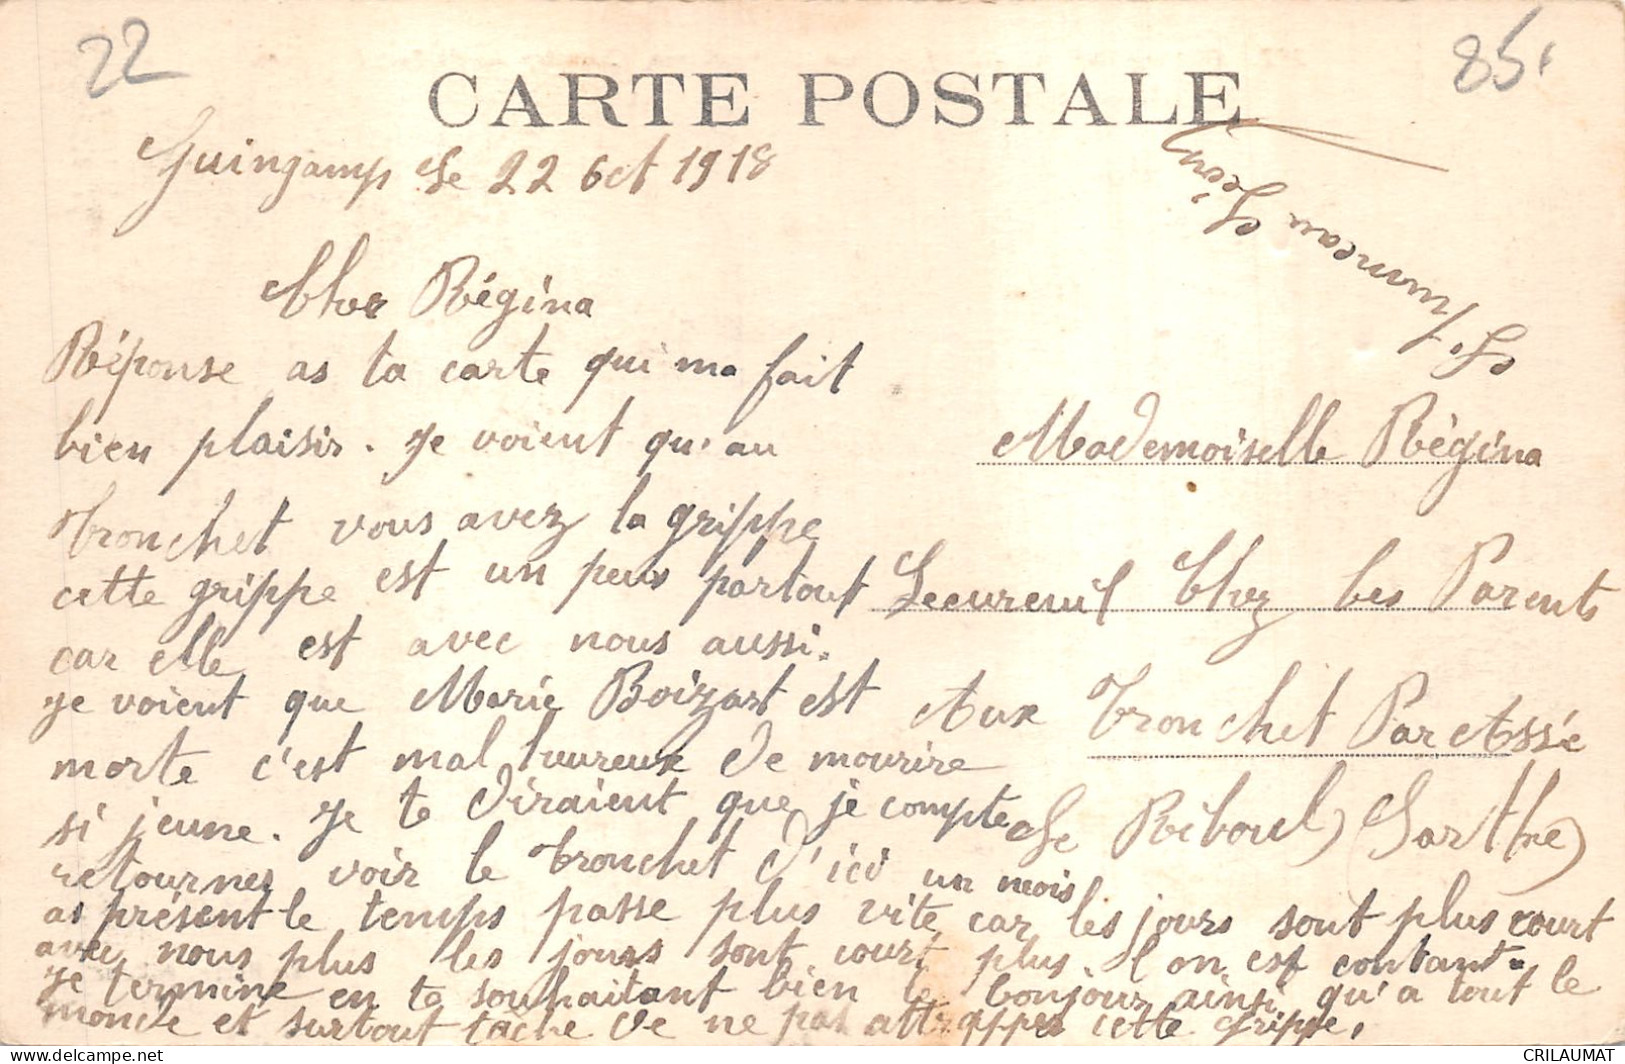 22
85
CARTE POSTALE
Guingamp le 22 Oct 1918
Cher Régina
Réponse as ta carte qui ma fait
bien plaisir. Je voient qu'au
Tronchet vous avez la grippe
cette grippe est un peus partout
car elle est avec nous aussi.
Je voient que Marie Boizart est
morte c'est mal heureux de mourire
si jeune. Je te diraient que je compte
retourner voir le Tronchet d'ici un mois
as présent le temps passe plus vite car les jours sont plus court
avec nous plus les jours sont court plus l'on est contant.
Je termine en te souhaitant bien le bonjour ainsi qu'a tout le
monde et surtout tâche de ne pas attrapper cette Grippe,
Jumeau Léon
Mademoiselle Régina
Lecureuil Chez Les Parents
Aux Tronchet Par Assé
Le Riboul (Sarthe)
delcampe.net
CRILAUMAT